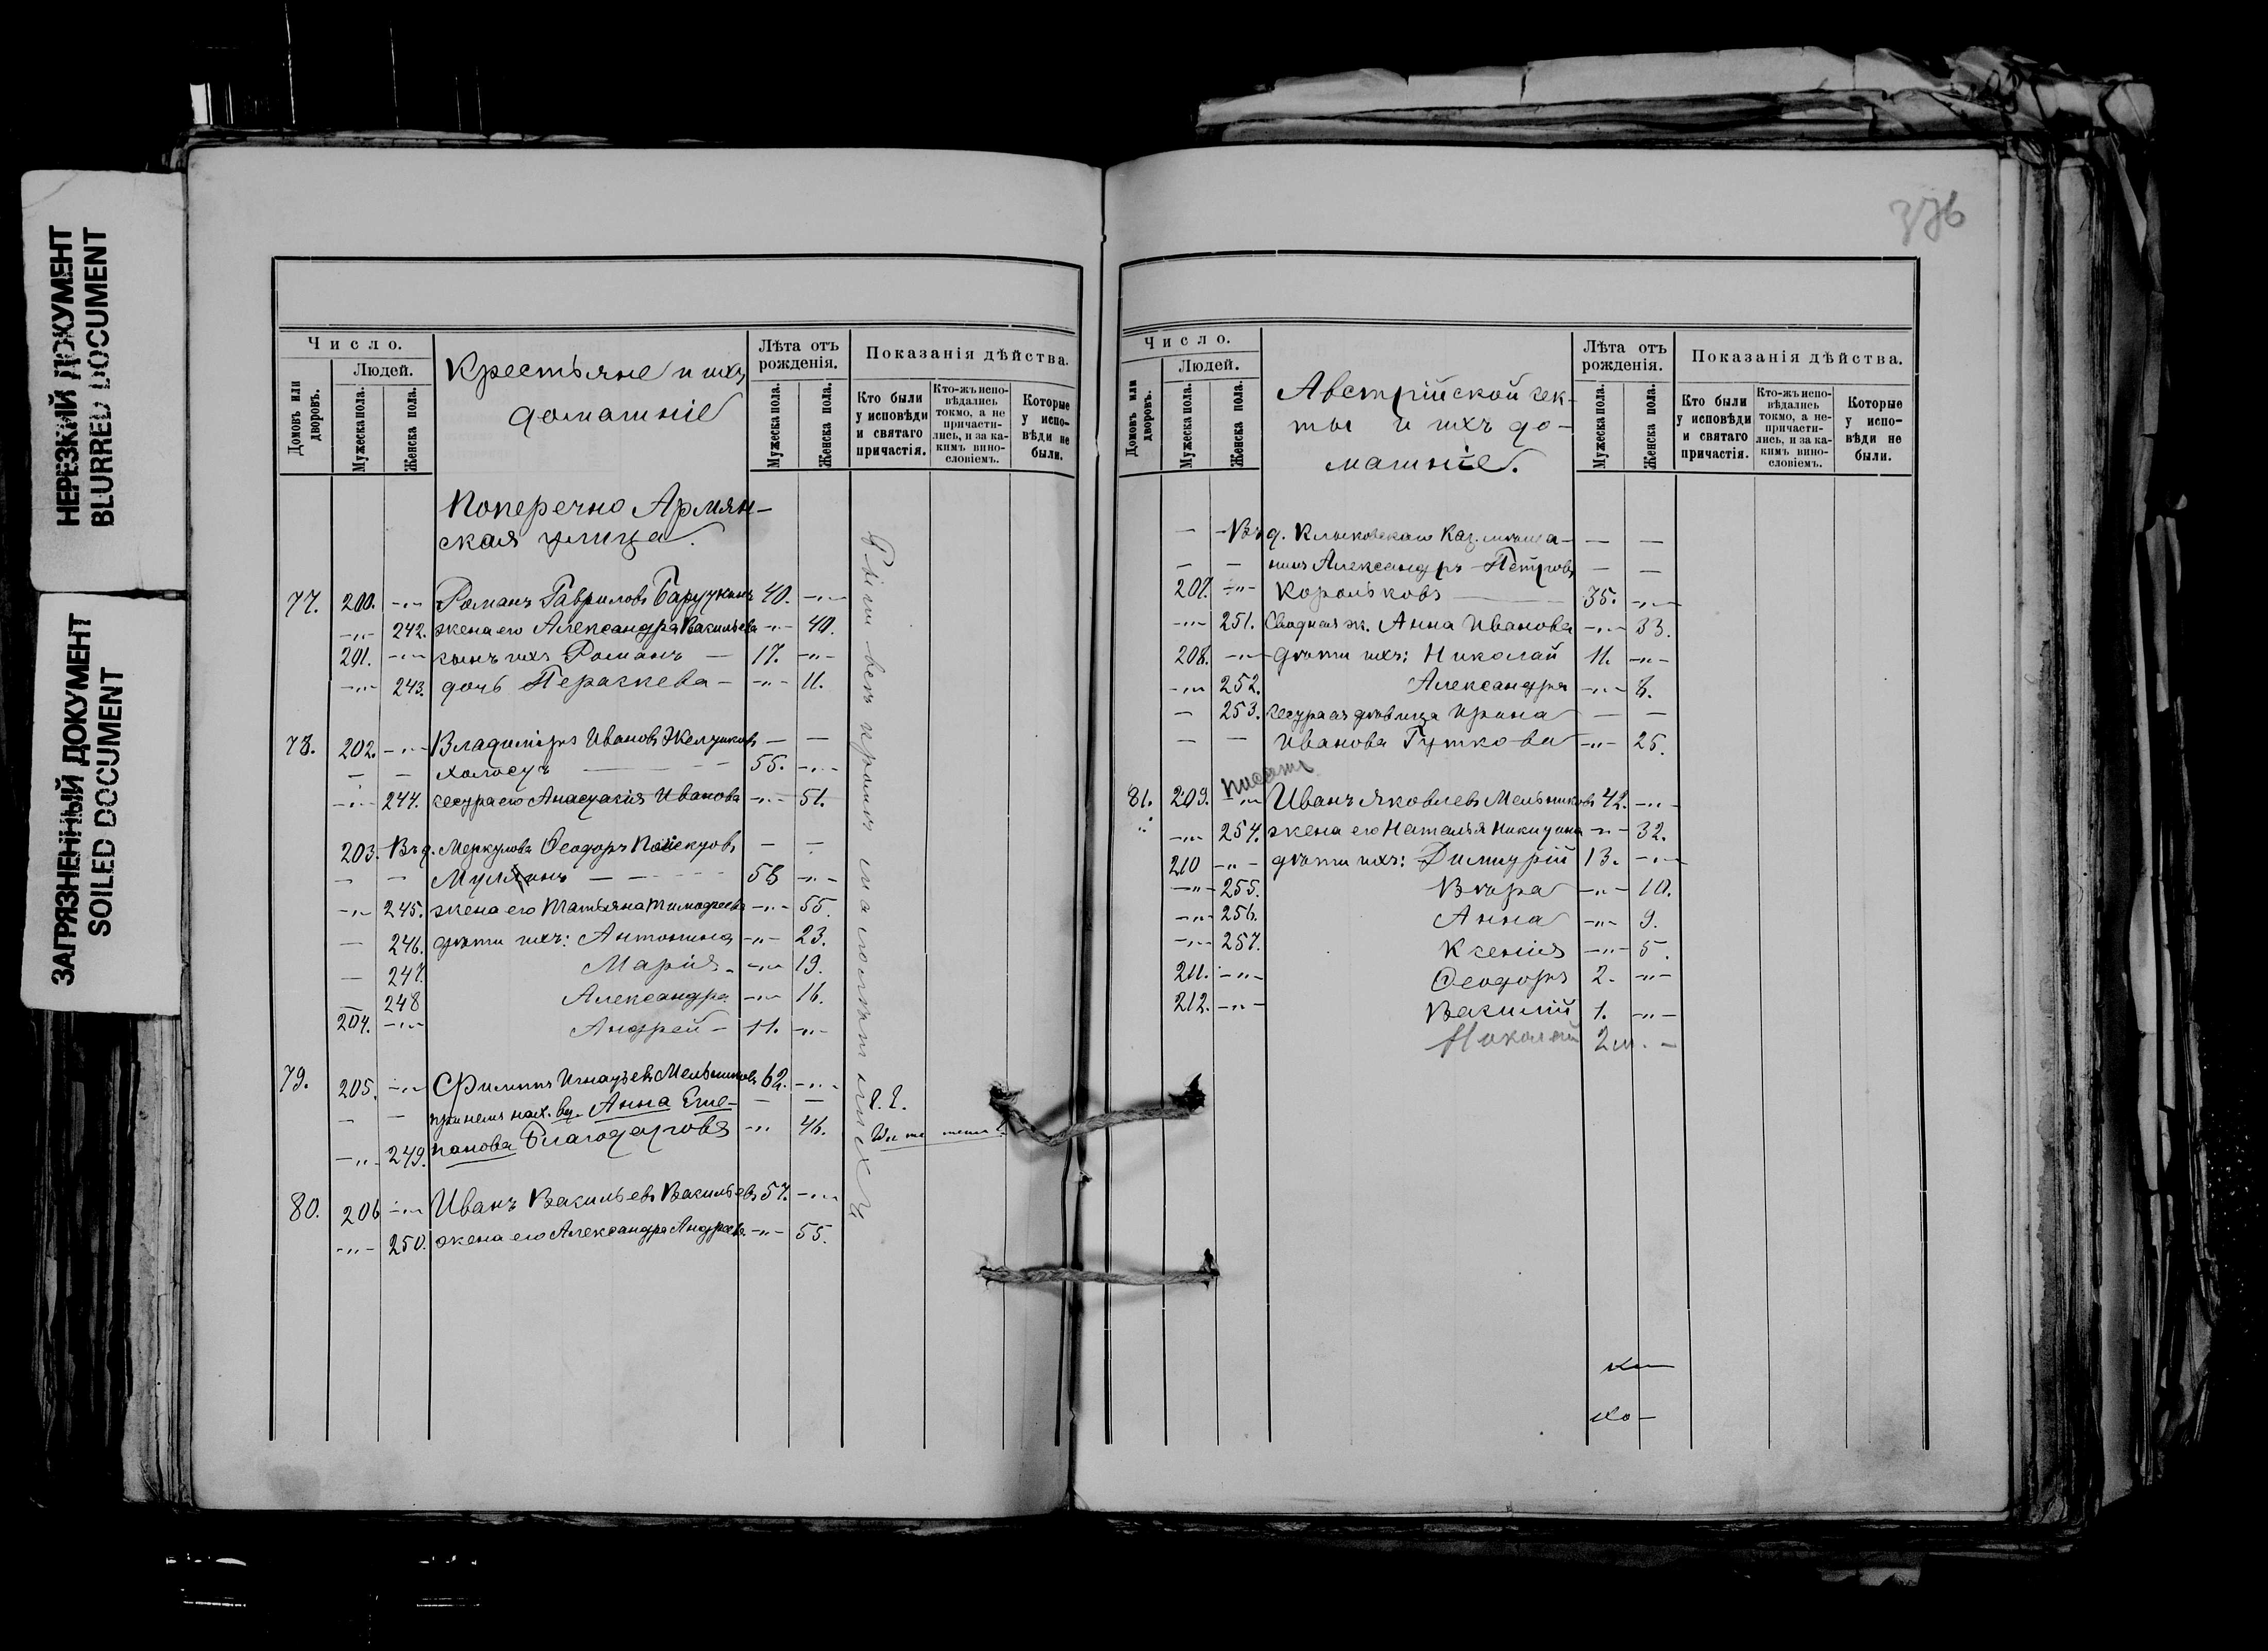 НЕРЕЗКИЙ ДОКУМЕНТ
BLURRED DOCUMENT
ЗАГРЯЗНЕННЫЙ ДОКУМЕНТ
SOILED DOCUMENT
Число.
Людей.
Домовъ или дворовъ.
Мужеска пола.
Женска пола.
Крестьяне и ихъ
домашніе
Лѣта отъ
рожденія.
Мужеска пола.
Женска пола.
Показанія дѣйства.
Кто были
у исповѣди
и святаго
причастія.
Кто-жъ испо-
вѣдались
токмо, а не
причасти-
лись, и за ка-
кимъ вино-
словіемъ.
Которые
у испо-
вѣди не
были.
Поперечно Армян-
ская улица.
77. 200. -"- Романъ Гавриловъ 40. -"-
-"- 242. жена его Александра Васильева -"- 40.
201. -"- сынъ ихъ Романъ — 17. -"-
-"- 243. дочь Параскева - -"- 11.
78. 202. -"- Владиміръ Ивановъ — —
— — холостъ — 55. -"-
-"- 244. сестра его Анастасія Иванова -"- 51.
203. Въ д. Меркулова Ѳеодоръ — —
— — 58 -"-
-"- 245. жена его Татьяна Тимофеева -"- 55.
— 246. дѣти ихъ: Антонина -"- 23.
— 247. Марія -"- 19.
— 248 Александра -"- 16.
204. -"- Андрей - 11. -"-
79. 205. -"- Филиппъ Игнатьевъ Мельниковъ 62. -"-
— — вд. Анна Сте- — —
-"- 249. панова -"- 46.
80. 206 -"- Иванъ Васильевъ Васильевъ 57. -"-
-"- 250. жена его Александра Андреева -"- 55.
376
Число.
Людей.
Домовъ или дворовъ.
Мужеска пола.
Женска пола.
Австрійской сек-
ты и ихъ до-
машніе.
Лѣта отъ
рожденія.
Мужеска пола.
Женска пола.
Показанія дѣйства.
Кто были
у исповѣди
и святаго
причастія.
Кто-жъ испо-
вѣдались
токмо, а не-
причасти-
лись, и за ка-
кимъ вино-
словіемъ.
Которые
у испо-
вѣди не
были.
— - Въ д. Каз. мѣща- — —
— — нинъ Александръ Петровъ — —
207. -"- Корольковъ — 35. -"-
-"- 251. Сводная ж. Анна Иванова -"- 33.
208. -"- дѣти ихъ: Николай 11. -"-
-"- 252. Александра -"- 8.
— 253. сестра ея дѣвица Ирина — —
— — Иванова -"- 25.
81. 209. -"- Иванъ Яковлевъ Мельниковъ 42. -"-
-"- 254. жена его Наталья Никитина -"- 32.
210 -"- дѣти ихъ: Димитрій 13. -"-
-"- 255. Вѣра -"- 10.
-"- 256. Анна -"- 9.
-"- 257. Ксенія -"- 5.
211. -"- Ѳеодоръ 2. -"-
212. -"- Василій 1. -"-
Николай 2 м. -